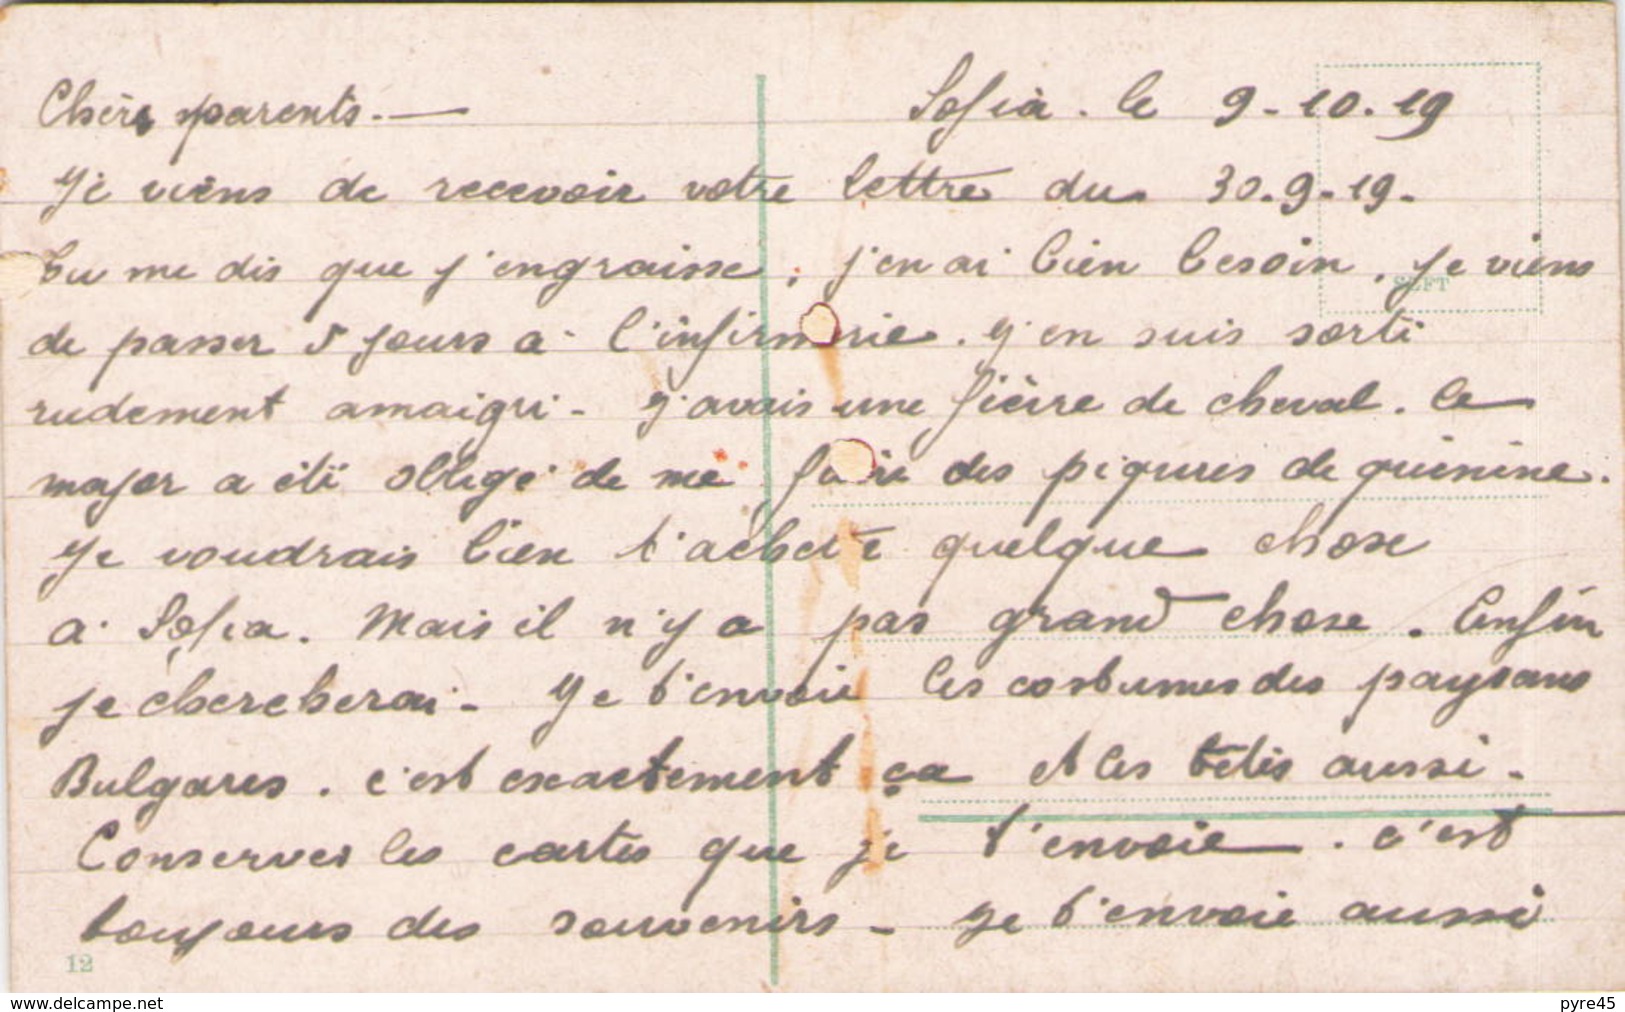 Chers parents. — Sofia. le 9-10.19
Je viens de recevoir votre lettre du 30.9-19.
tu me dis que j'engraisse, j'en ai bien besoin. Je viens
de passer 5 jours a l'infirmerie. J'en suis sorti
rudement amaigri - J'avais une fièvre de cheval. le
major a été obligé de me faire des piqures de quinine.
Je voudrais bien t'acheté quelque chose
a Sofia. Mais il n'y a pas grand chose. Enfin
je chercherai - Je t'envoie les costumes des paysans
Bulgares. c'est exactement ça et les têtes aussi -
Conserves les cartes que je t'envoie. c'est
toujours des souvenirs - Je t'envoie aussi
12
www.delcampe.net
pyre45